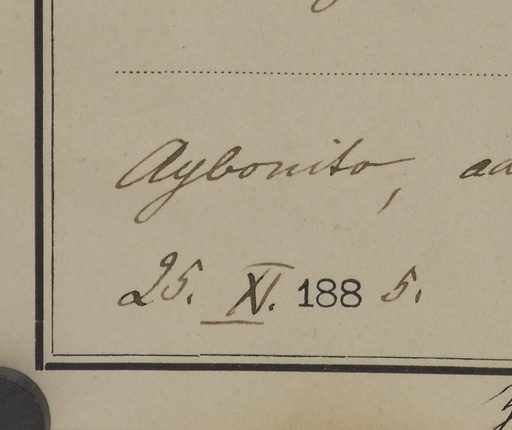 Aybonito, ad
25. XI. 1885.